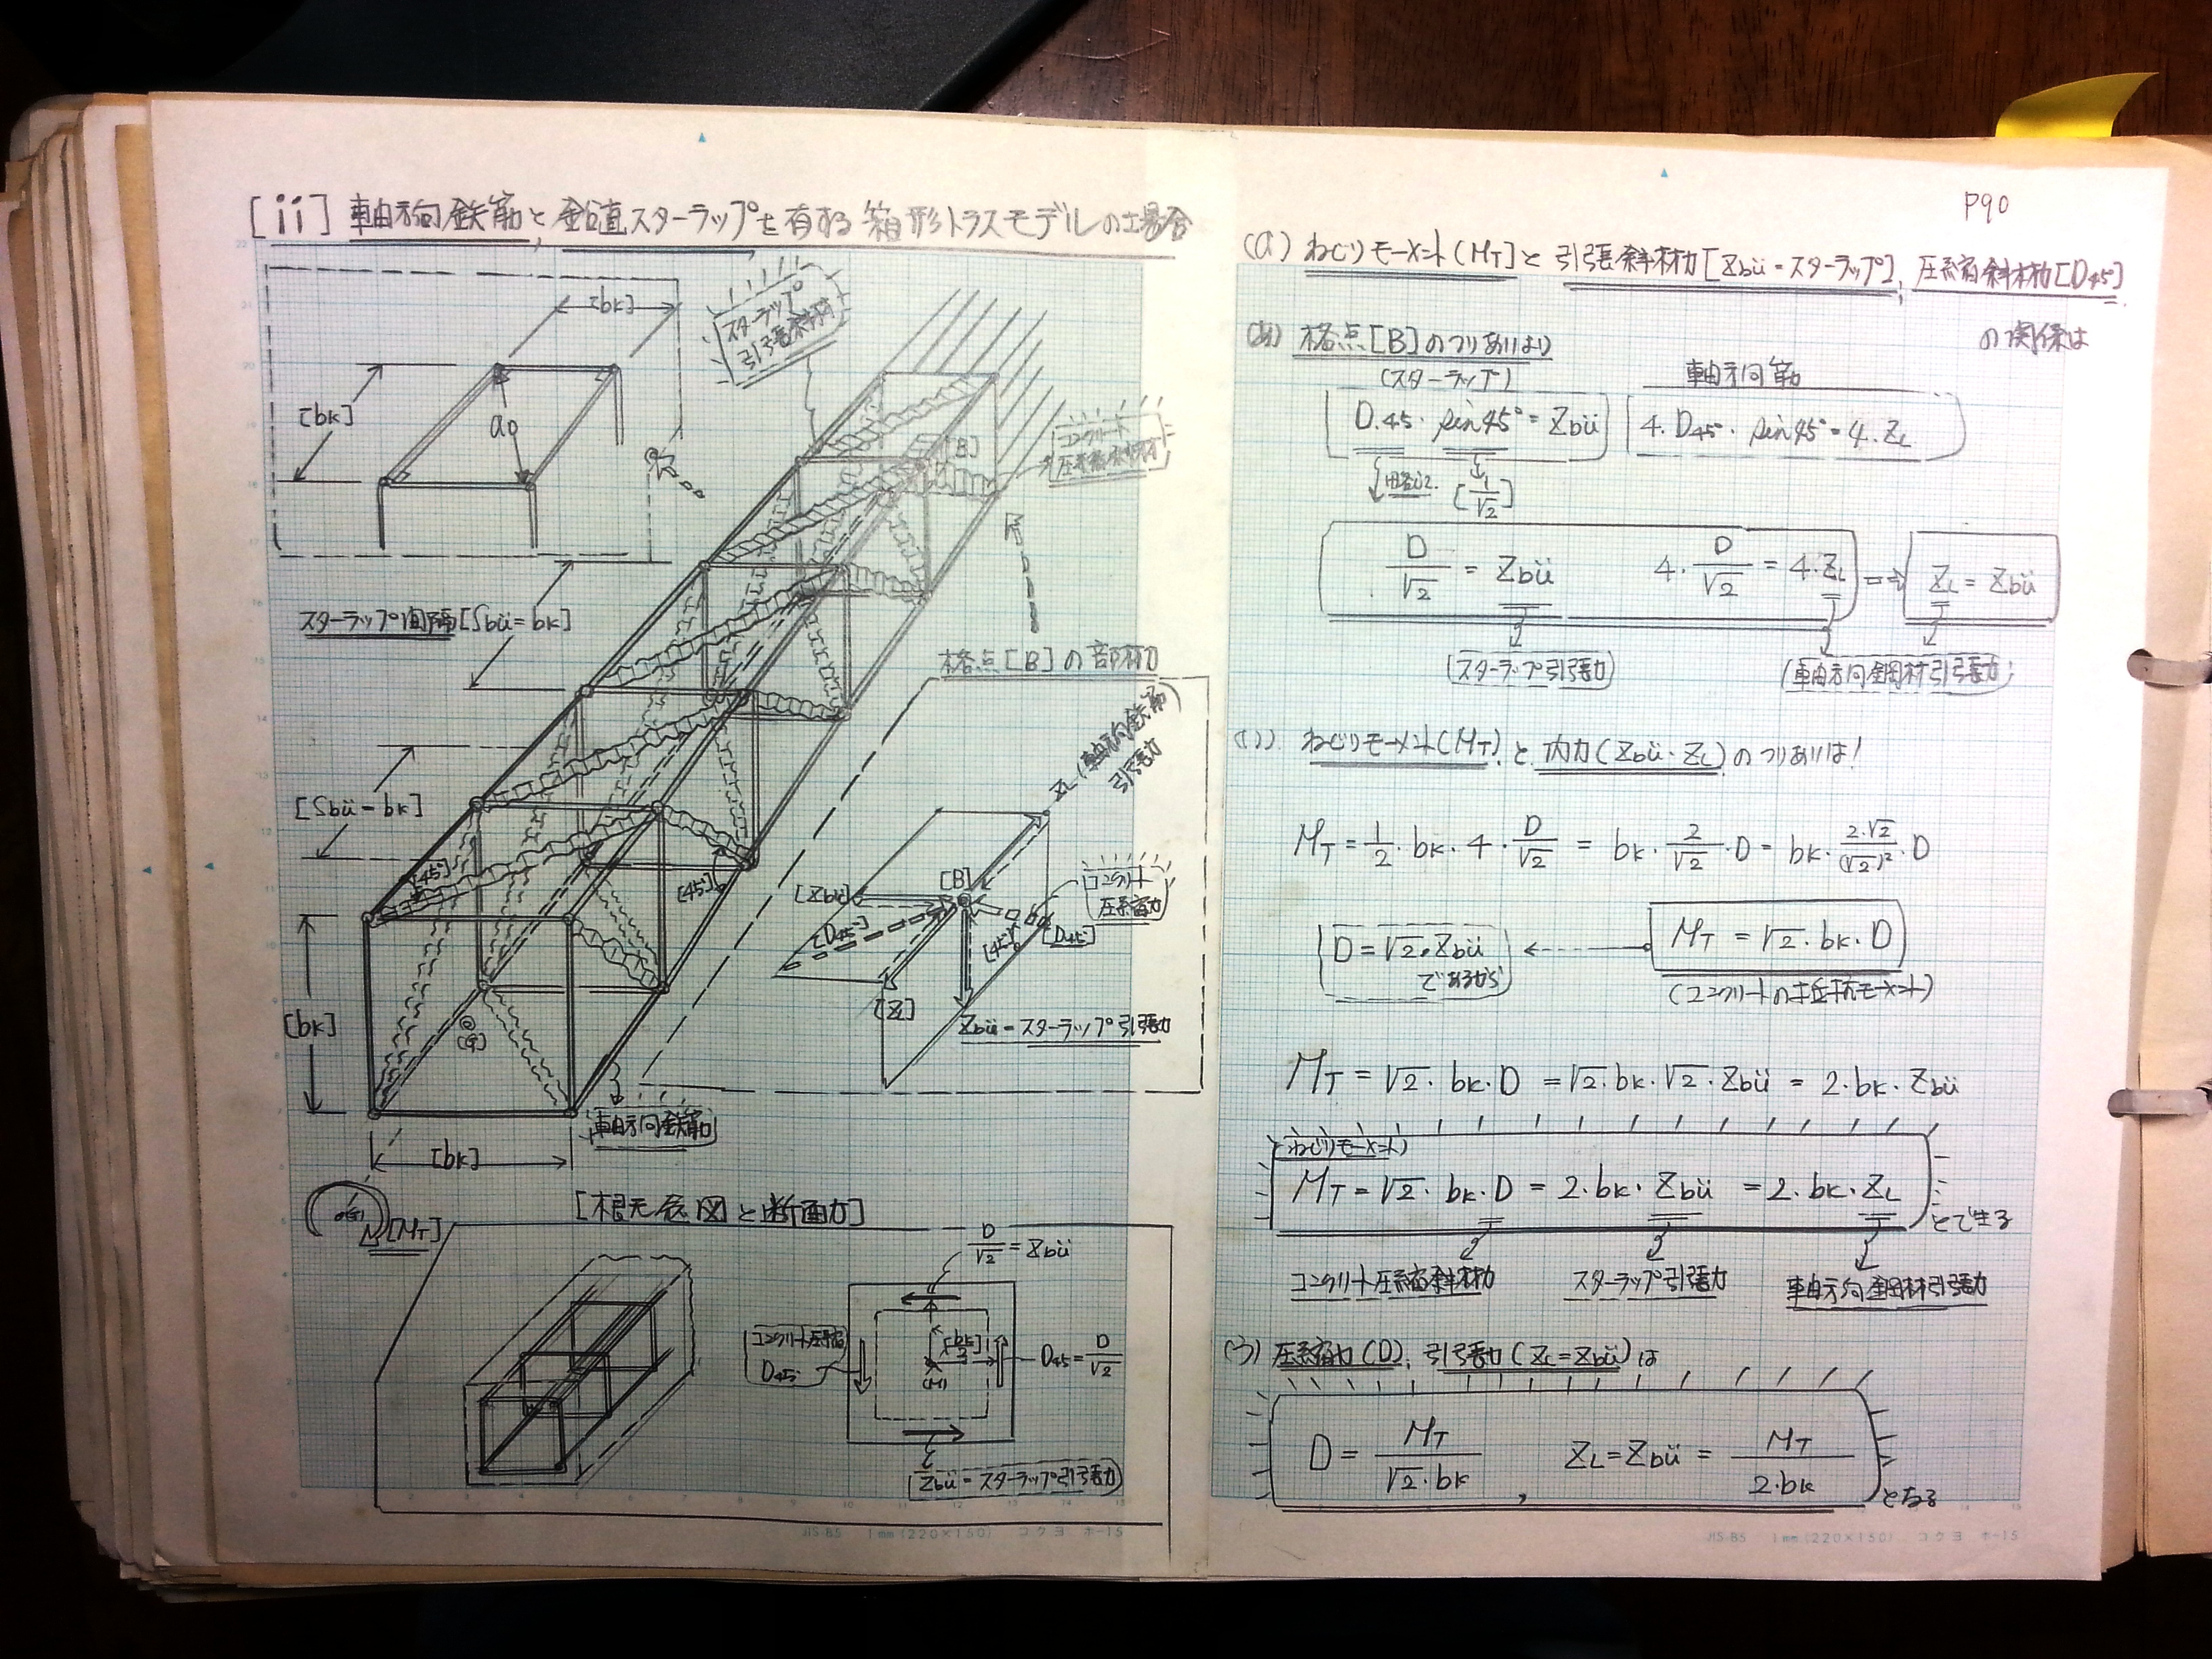 [ii] 軸方向鉄筋と鉛直スターラップを有する箱形トラスモデルの場合
[bk]
[bk]
a0
スターラップ
引張斜材
[B]
コンクリート
圧縮斜材
スターラップ間隔[Sbü=bk]
[Sbü=bk]
[45°]
[45°]
[bk]
[bk]
軸方向鉄筋
[MT]
格点[B]の部材力
ZL(軸方向鉄筋)
引張力
[Zbü]
[B]
コンクリート
圧縮力
[D45°]
[45°]
[D45°]
[ZL]
Zbü=スターラップ引張力
[概念図と断面力]
D/√2 = Zbü
コンクリート圧縮
D45
[bk/2]
(M)
D45 = D/√2
Zbü=スターラップ引張力
JIS-B5 1mm(220×150) コクヨ ホ-15
P90
(a) ねじりモーメント(MT)と引張斜材力[Zbü=スターラップ], 圧縮斜材力[D45°]
の関係は
(あ) 格点[B]のつりあいより
(スターラップ) 軸方向筋
D.45・sin45°=Zbü 4.D45°・sin45°=4.ZL
略して [1/√2]
D/√2 = Zbü 4・D/√2 = 4.ZL ⇒ ZL = Zbü
(スターラップ引張力) (軸方向鋼材引張力)
(い) ねじりモーメント(MT)と内力(Zbü・ZL)のつりあいは!
MT = 1/2・bk・4・D/√2 = bk・2/√2・D = bk・2.√2/(√2)²・D
D=√2・Zbü ← MT = √2・bk・D
であるから (コンクリートの抵抗モーメント)
MT = √2・bk・D = √2・bk・√2・Zbü = 2・bk・Zbü
ねじりモーメント
MT = √2・bk・D = 2・bk・Zbü = 2・bk・ZL
とできる
コンクリート圧縮斜材力 スターラップ引張力 軸方向鋼材引張力
(う) 圧縮力(D), 引張力(ZL=Zbü)は
D = MT/√2・bk , ZL=Zbü = MT/2・bk
となる
JIS-B5 1mm(220×150) コクヨ ホ-15